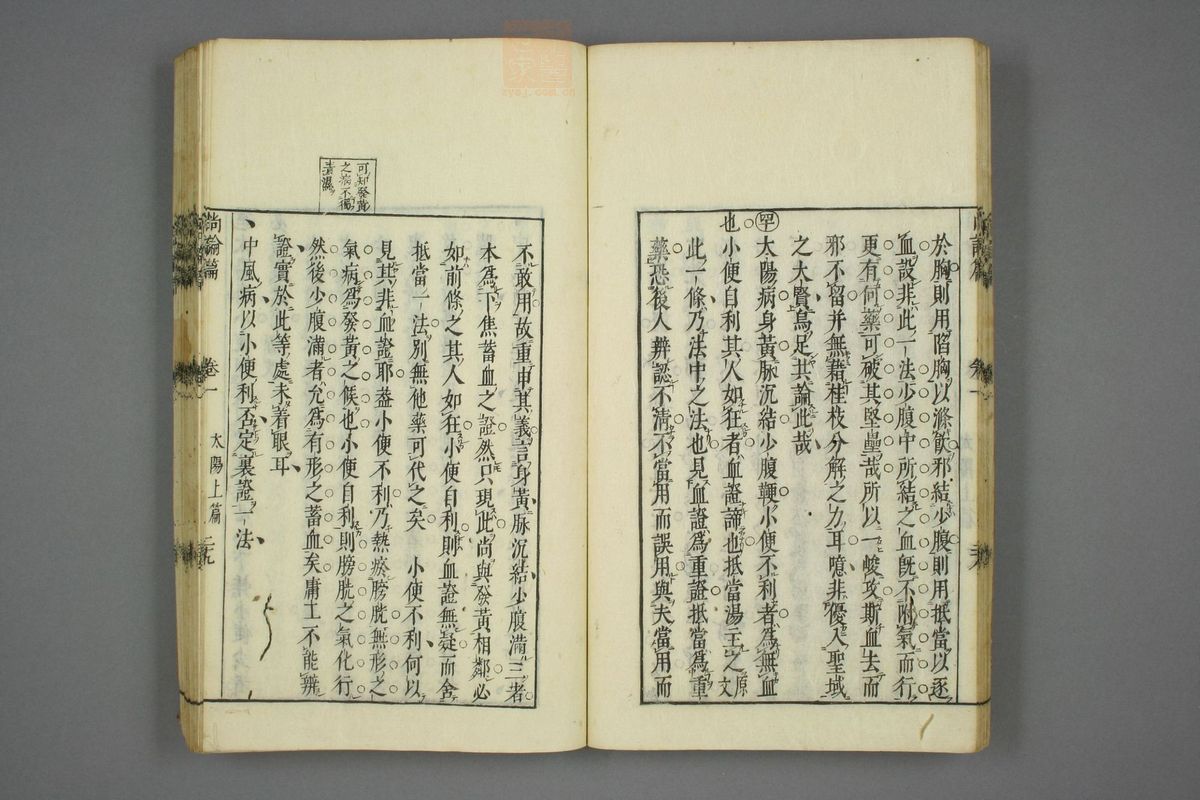 於胸則用陷胸以滌飲邪結少腹則用抵當以逐
血設非此一法少腹中所結之血既不附氣而行
更有何藥可破其堅壘哉所以一峻攻斯血去而
邪不留并無藉桂枝分解之力耳噫非優入聖域
之大賢烏足其論此哉
太陽病身黃脉沉結少腹鞕小便不利者爲無血
也小便自利其人如狂者血證諦也抵當湯主之原文
此一條乃法中之法也見血證爲重證抵當爲重
藥恐後人辨認不清不當用而誤用與夫當用而
尚論篇
不敢用故重申其義言身黃脉沉結少腹滿三者
本爲下焦蓄血之證然只現此尚與發黃相鄰必
如前條之其人如狂小便自利則血證無疑而舍
抵當一法別無他藥可代之矣 小便不利何以
見其非血證耶葢小便不利乃熱瘀膀胱無形之
氣病爲發黃之候也小便自利則膀胱之氣化行
然後少腹滿者允爲有形之蓄血矣庸工不能辨
證實於此等處未着眼耳
、中風病以小便利否定裏證一法
可知發黃
之病不獨
尚論篇 卷一 太陽上篇
zyoj.com.cn